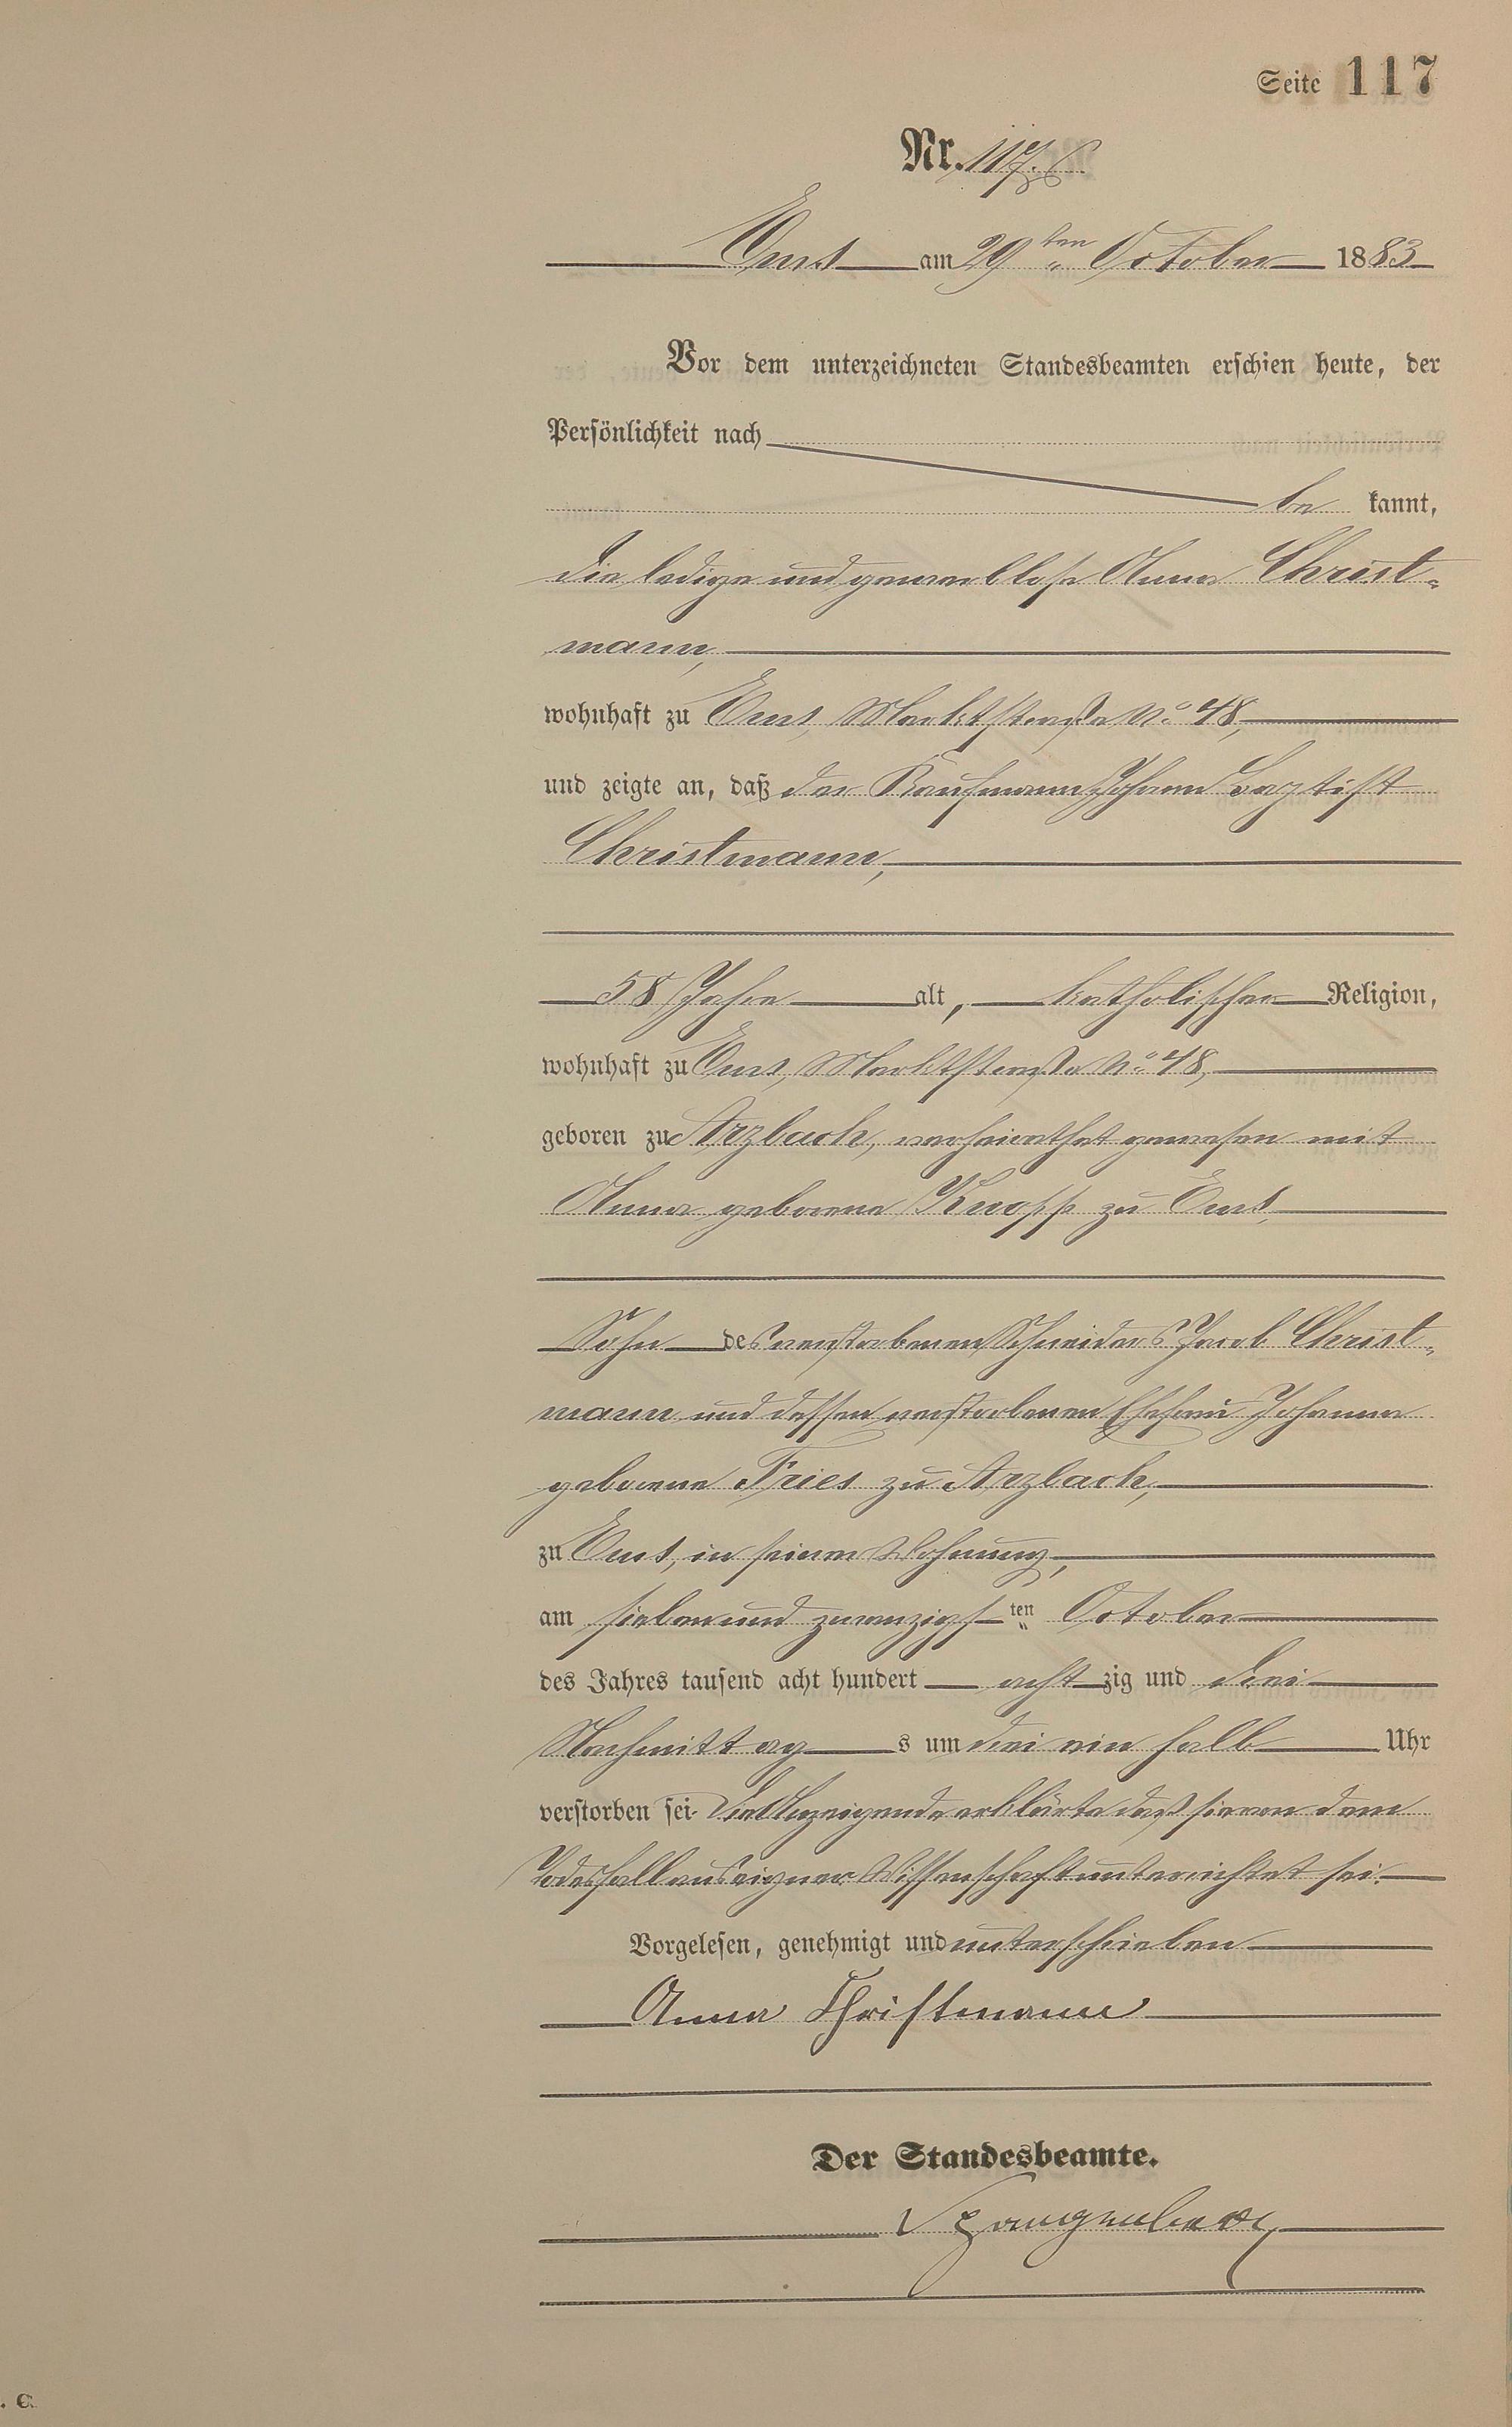 Seite 117
Nr. 117.
Ems am 29ten October 1883
Vor dem unterzeichneten Standesbeamten erschien heute, der
Persönlichkeit nach
be kannt,
die ledige und gewerblose Anna Christ-
mann,
wohnhaft zu Ems, Marktstraße No 48,
und zeigte an, daß der Kaufmann Johann Baptist
Christmann,
58 Jahre alt, katholischer Religion,
wohnhaft zu Ems, Marktstraße No 48,
geboren zu Arzbach, verheirathet gewesen mit
Anna geborene Knopp zu Ems,
Sohn des verstorbenen Schneiders Jacob Christ-
mann und dessen verstorbenen Ehefrau Johanna
geborene Fries zu Arzbach,
zu Ems, in seiner Wohnung,
am siebenundzwanzigsten October
des Jahres tausend acht hundert achtzig und drei
Nachmittags um drei ein halb Uhr
verstorben sei. Die Anzeigende erklärte daß sie von dem
Todesfall aus eigner Wissenschaft unterrichtet sei.
Vorgelesen, genehmigt und unterschrieben
Anna Christmann
Der Standesbeamte.
Spangenberg